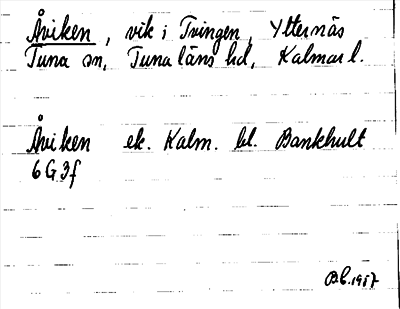 Åviken, vik i Tvingen, Ytternäs
Tuna sn, Tuna läns hd, Kalmar l.
Åviken ek. Kalm. bl. Bankhult
6G3f
1957